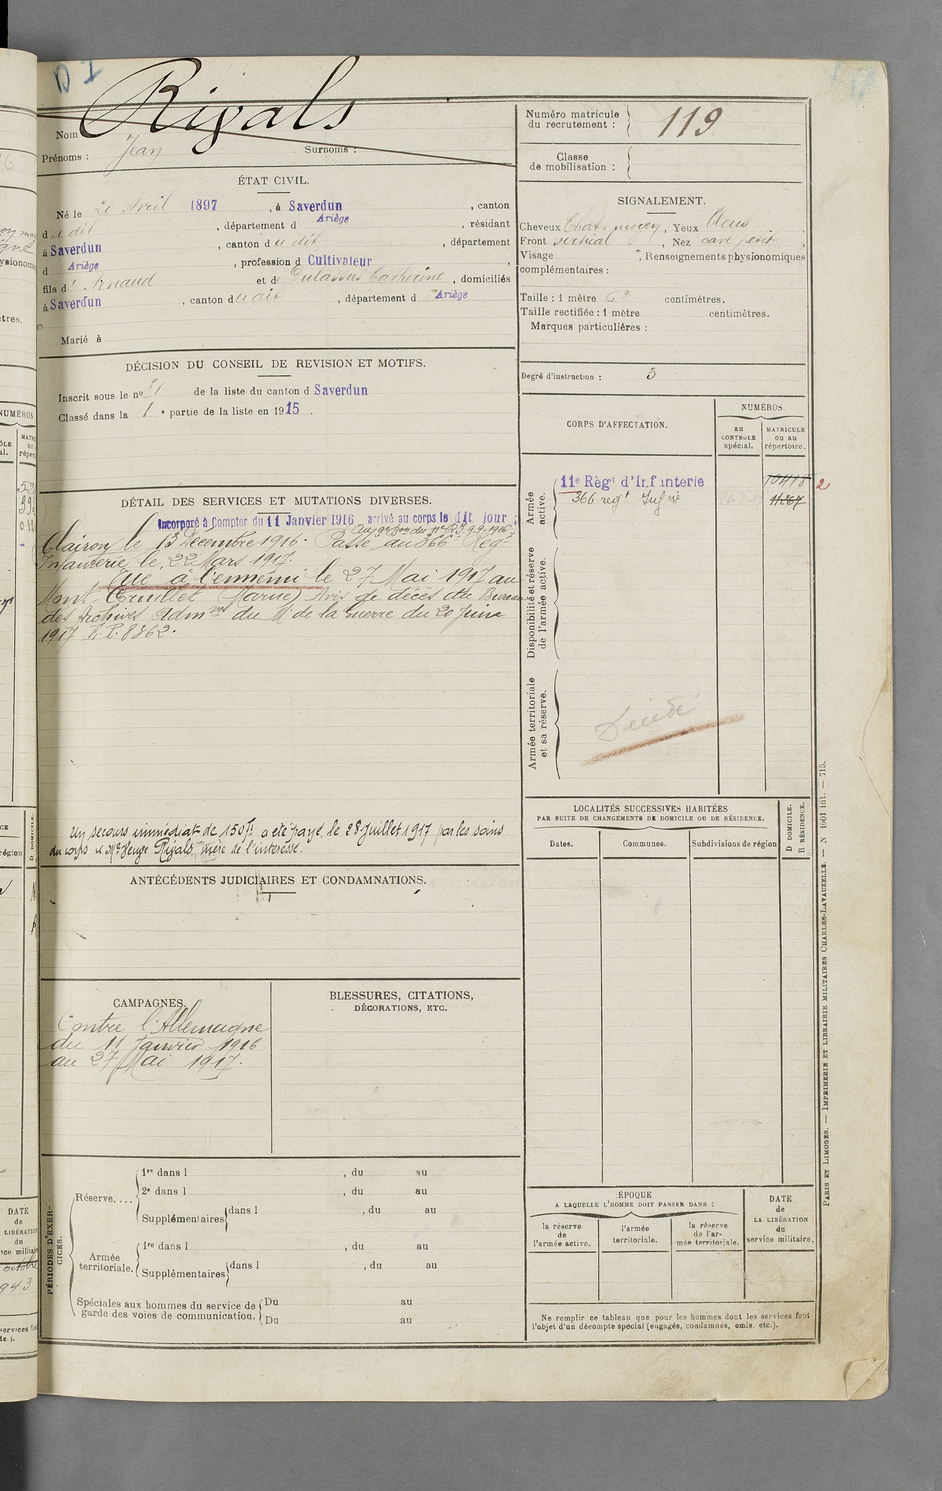 D I
Rivals
Nom
Prénoms : Jean Surnoms :
Numéro matricule
du recrutement : 119
Classe
de mobilisation :
ÉTAT CIVIL.
Né le 20 Avril 1897, à Saverdun, canton
dudit, département d Ariège, résidant
à Saverdun, canton dudit, département
d Ariège, profession d Cultivateur,
fils d' Arnaud et de Catherine, domiciliés
à Saverdun, canton dudit, département d Ariège
Marié à
SIGNALEMENT.
Cheveux Chat. , Yeux bleus ,
Front vertical , Nez cave petit ,
Visage , Renseignements physionomiques
complémentaires :
Taille : 1 mètre 62 centimètres.
Taille rectifiée : 1 mètre centimètres.
Marques particulières :
Degré d'instruction : 3
DÉCISION DU CONSEIL DE REVISION ET MOTIFS.
Inscrit sous le n° 81 de la liste du canton d Saverdun
Classé dans la 1e partie de la liste en 1915.
CORPS D'AFFECTATION.
NUMÉROS
au
CONTROLE
spécial.
MATRICULE
ou au
répertoire.
Armée
active.
11e Règt d'Infanterie 10418 2
366 regt Infrie 11367
Disponibilité et réserve
de l'armée active.
Armée territoriale
et sa réserve.
Décédé
DÉTAIL DES SERVICES ET MUTATIONS DIVERSES.
Incorporé à Compter du 11 Janvier 1916 arrivé au corps le dit jour
du 11e R.I. 9-9-1916
Clairon le 13 Décembre 1916. Passé au 366e Regt
Infanterie le 22 Mars 1917.
Tué à l'ennemi le 27 Mai 1917 au
Mont Cornillet (Marne) Avis de décès du Bureau
des Archives Admves du Mre de la Guerre du 20 Juin
1917 8362.
Un secours immédiat de 150f a été payé, le 28 Juillet 1917 par les soins
du corps à Mme Veuve Rivals, mère de l'intéressé.
LOCALITÉS SUCCESSIVES HABITÉES
PAR SUITE DE CHANGEMENTS DE DOMICILE OU DE RÉSIDENCE.
Dates. Communes. Subdivisions de région
D DOMICILE.
R RÉSIDENCE.
ANTÉCÉDENTS JUDICIAIRES ET CONDAMNATIONS.
CAMPAGNES.
Contre l'Allemagne
du 11 Janvier 1916
au 27 Mai 1917.
BLESSURES, CITATIONS,
DÉCORATIONS, ETC.
PÉRIODES D'EXER-
CICES.
Réserve....
1re dans l , du au
2e dans l , du au
Supplémentaires dans l , du au
du au
Armée
territoriale.
1re dans l , du au
Supplémentaires dans l , du au
Spéciales aux hommes du service de
garde des voies de communication.
Du au
Du au
ÉPOQUE
A LAQUELLE L'HOMME DOIT PASSER DANS :
la réserve
de
l'armée active.
l'armée
territoriale.
la réserve
de l'ar-
mée territoriale.
DATE
DE
LA LIBÉRATION
du
service militaire.
Ne remplir ce tableau que pour les hommes dont les services font
l'objet d'un décompte spécial (engagés, condamnés, omis, etc.).
PARIS ET LIMOGES. — IMPRIMERIE ET LIBRAIRIE MILITAIRES CHARLES-LAVAUZELLE. — N 1901 int. — 715.